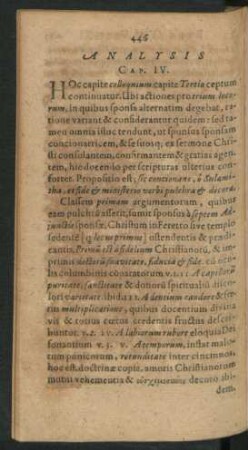 446
ANALYSIS
CAP. IV.
HOc capite colloquium capite Tertio ceptum
continuatur. Ubi actiones pro rerum loco-
rum, in quibus sponsa alternatim degebat, ra-
tione variant & considerantur quidem: sed ta-
men omnia illuc tendunt, ut sponsus sponsam
concionatricem, & se suosq; ex sermone Chri-
sti consulantem, confirmantem & gratias agen-
tem, hic docendo per scripturas ulterius con-
fortet. Propositio est, sic concionans, ô Sulami-
tha, es fide & ministerio verbi pulchra & decora.
Classem primam argumentorum, quibus
eam pulchrã asserit, sumit sponsus à septem Ad-
junctis sponsæ. Christum in Feretro sive templo
sedentis [q locus primus] ostendentis & prædi-
cantis. Primũ est à fide Christianorũ, & in-
primis doctorũ suavitate, fiducia & fide
in columbinis constitutorum v. 1. 2 A capillorũ
puritate, sanctitate & donorũ spiritualiũ disci-
lori varietate ibid. 3. A dentium candore & fer-
tili multiplicatione, quibus docentium divitiis
vis & totius cœtus credentis fructus descri-
buntur. v. 2. 4. A labiorum rubore eloquia Dei
sonantium v. 3. 5. A temporum, instar mali-
torum punicorum, rotunditate inter cincinnos,
hoc est, doctrinæ copiæ, amoris Christianorum
mutui vehementis & decoro ibi-
dem.